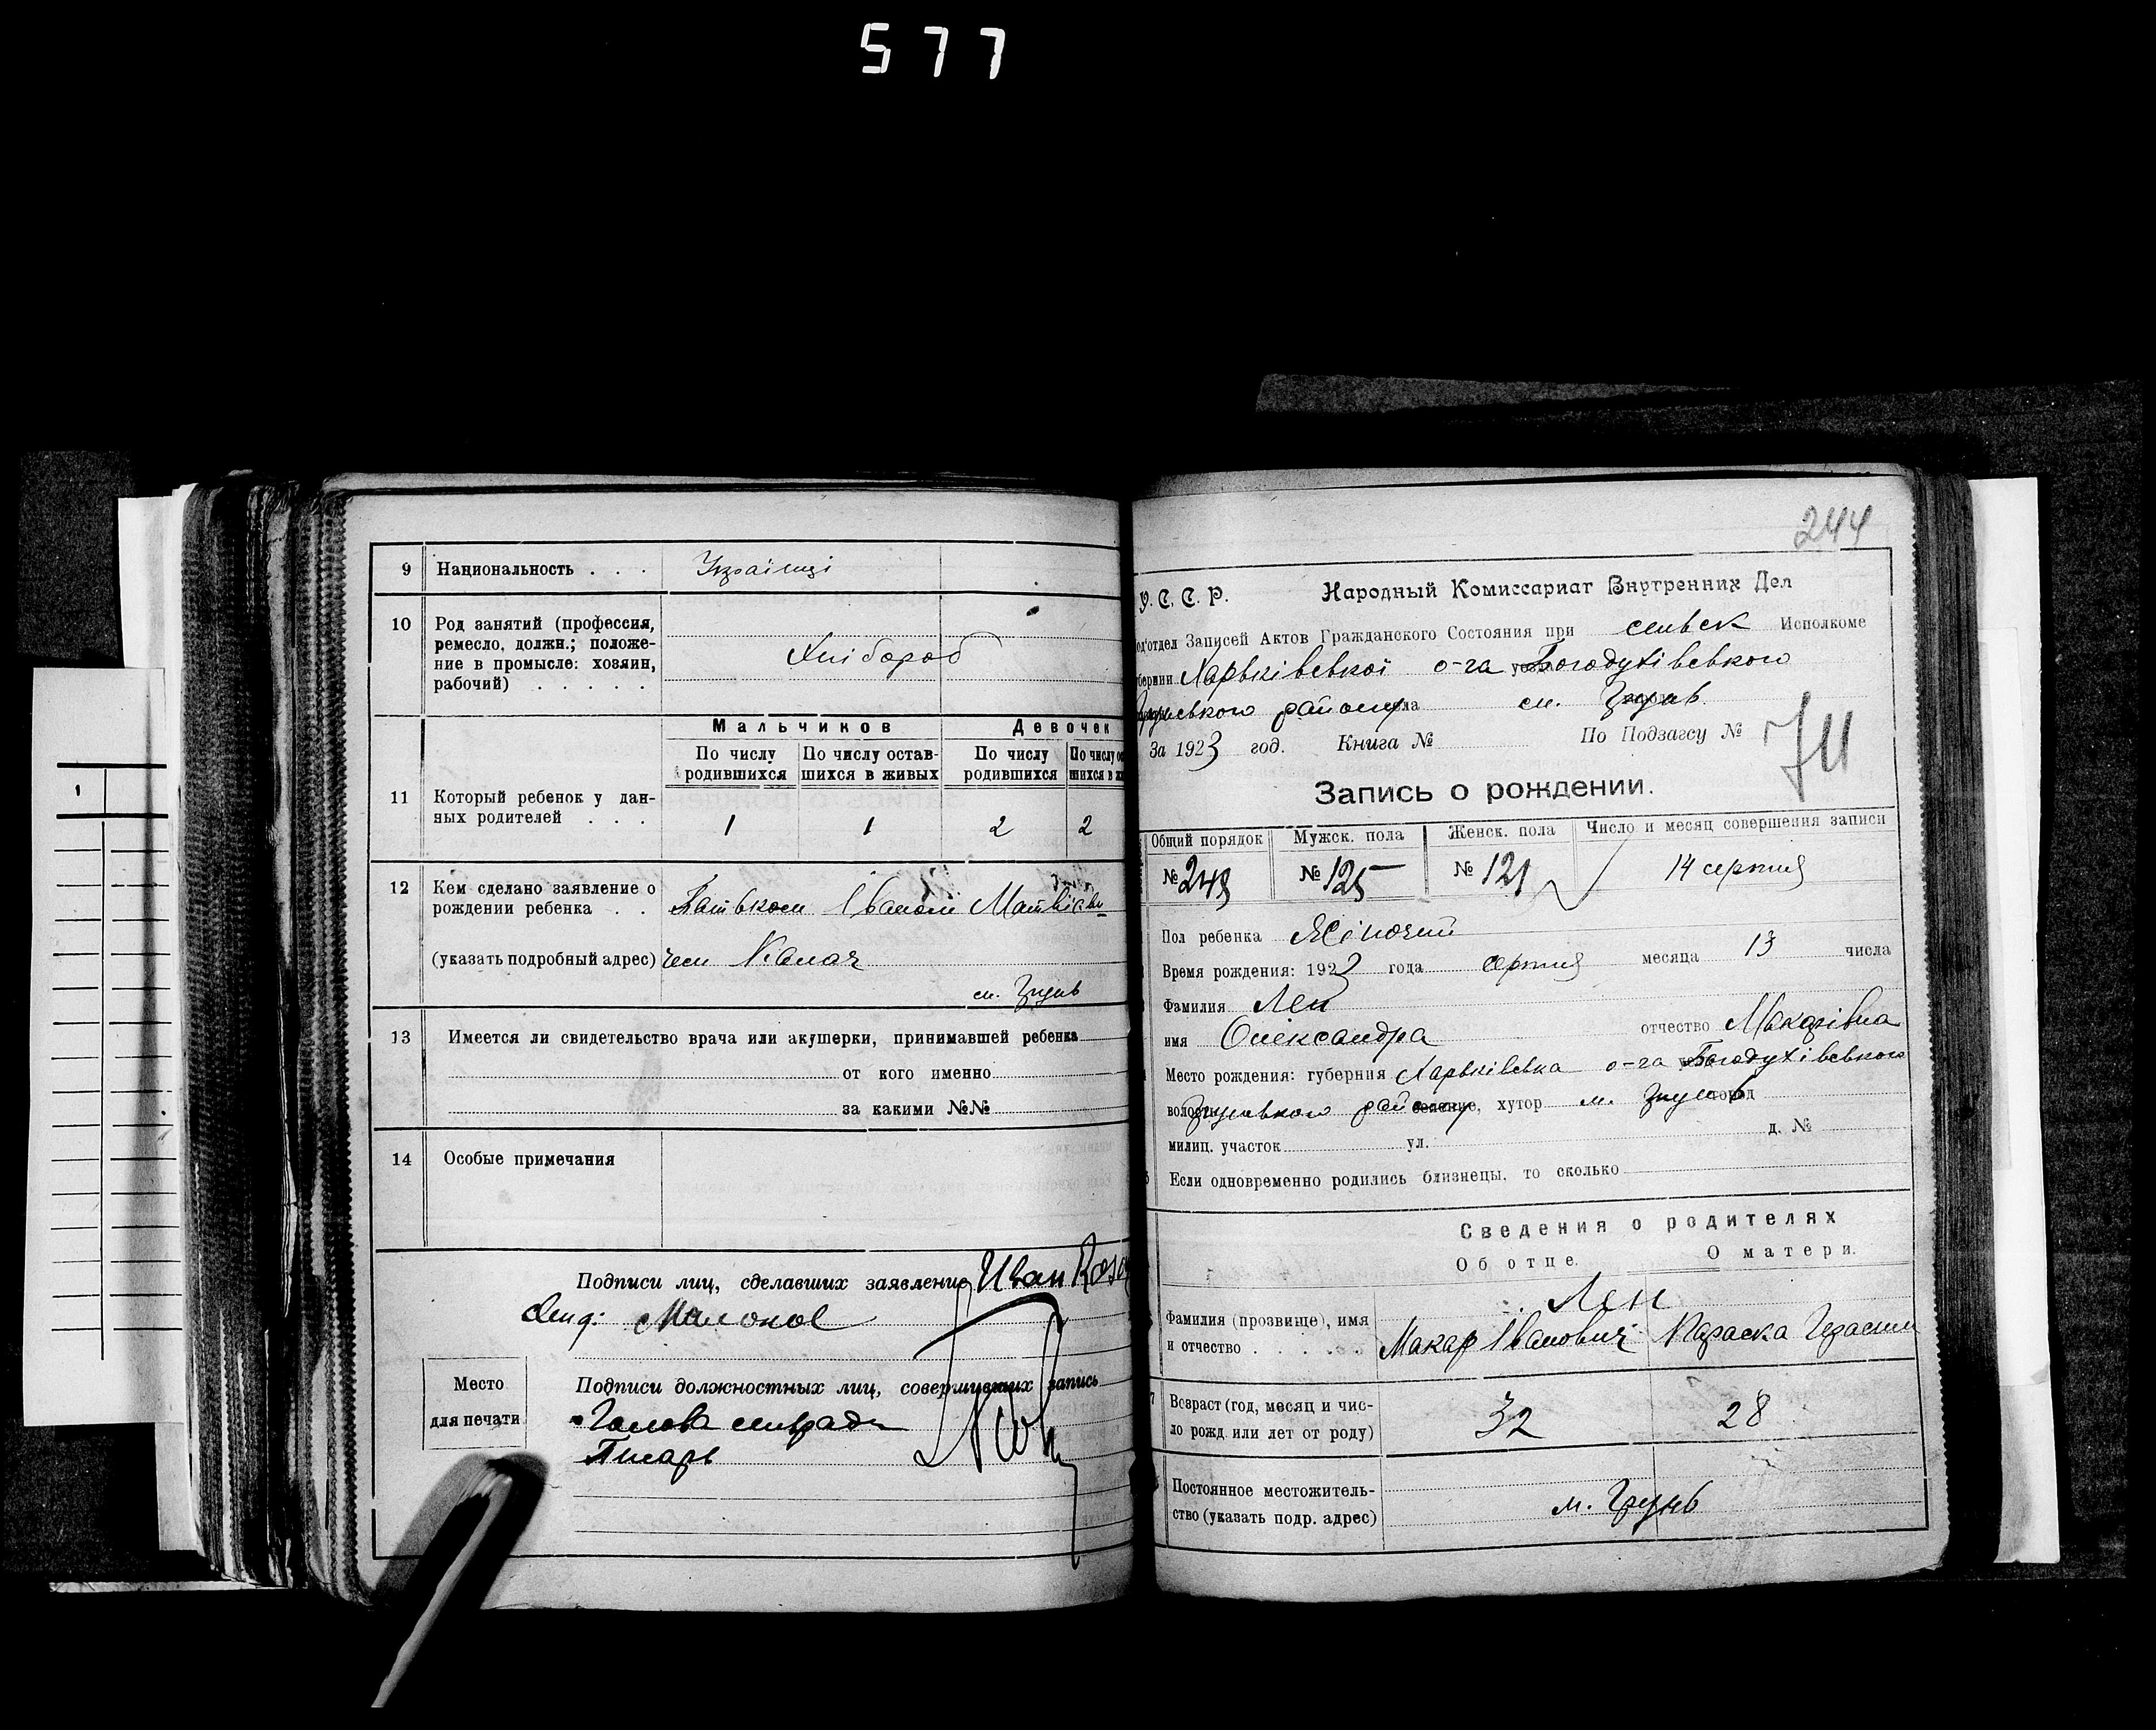 577
9 Национальность . . . Українці
10 Род занятий (профессия, ремесло, должн.; положе-
ние в промысле: хозяин, рабочий) . . . . . Хлібороб
Мальчиков Девочек
По числу родившихся По числу остав-шихся в живых По числу родившихся По числу
11 Который ребенок у дан-
ных родителей . . . 1 1 2 2
12 Кем сделано заявление о
рождении ребенка . . Батьком Іваном Матвіеви-
(указать подробный адрес) чем
см. Грунь
13 Имеется ли свидетельство врача или акушерки, принимавшей ребенка
от кого именно
за какими №№
14 Особые примечания
Подписи лиц, сделавших заявление Иван
Место для печати
Подписи должностных лиц, совершивших запись
Голова сільради
Писарь
244
У. С. С. Р. Народный Комиссариат Внутренних Дел
Записей Актов Гражданского Состояния при сільск Исполкоме
Харьківської о-га Богодухівського
району села см. Грунь
За 1923 год. Книга № По Подзагсу №
Запись о рождении.
Общий порядок Мужск. пола Женск. пола Число и месяц совершения записи
№ № 125 № 121 14 серпня
Пол ребенка Жіночий
Время рождения: 1923 года серпня месяца 13 числа
Фамилия Лен
имя Олександра отчество Макарівна
Место рождения: губерния Харьківська о-га Богодухівського
волость Грунського району селение, хутор м. Грунь город
милиц. участок ул. д. №
Если одновременно родились близнецы, то сколько
Сведения о родителях
Об отце. О матери.
Лен
Фамилия (прозвище), имя
и отчество . . . . . Макар Іванович Параска Герасим
Возраст (год, месяц и чис-
ло рожд. или лет от роду) 32 28
Постоянное местожитель-
ство (указать подр. адрес) м. Грунь